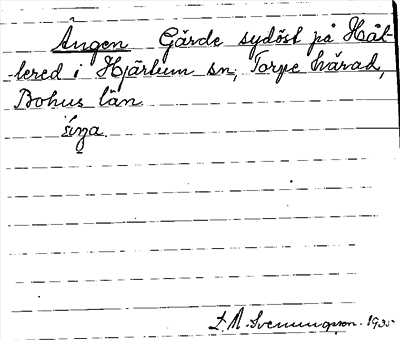 Ängen Gärde sydöst på Hål-
lered i Hjärtum sn, Torpe härad,
Bohus län
änga
L. M. Svenungsson. 1935